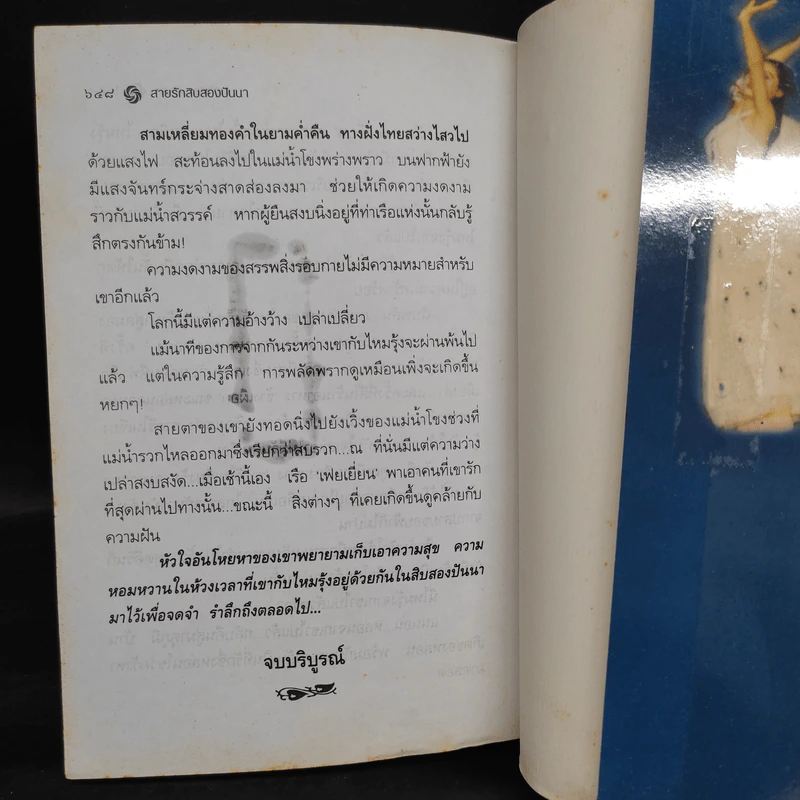 ๖๔๘ สายรักสิบสองปันนา
สามเหลี่ยมทองคำในยามค่ำคืน ทางฝั่งไทยสว่างไสวไป
ด้วยแสงไฟ สะท้อนลงไปในแม่น้ำโขงพร่างพราว บนฟากฟ้ายัง
มีแสงจันทร์กระจ่างสาดส่องลงมา ช่วยให้เกิดความงดงาม
ราวกับแม่น้ำสวรรค์ หากผู้ยืนสงบนิ่งอยู่ที่ท่าเรือแห่งนั้นกลับรู้
สึกตรงกันข้าม!
ความงดงามของสรรพสิ่งรอบกายไม่มีความหมายสำหรับ
เขาอีกแล้ว
โลกนี้มีแต่ความอ้างว้าง เปล่าเปลี่ยว
แม้นาทีของการจากกันระหว่างเขากับไหมรุ้งจะผ่านพ้นไป
แล้ว แต่ในความรู้สึก การพลัดพรากดูเหมือนเพิ่งจะเกิดขึ้น
หยกๆ!
สายตาของเขายังทอดนิ่งไปยังเวิ้งของแม่น้ำโขงช่วงที่
แม่น้ำรวกไหลออกมาซึ่งเรียกว่าสบรวก...ณ ที่นั่นมีแต่ความว่าง
เปล่าสงบสงัด...เมื่อเช้านี้เอง เรือ 'เฟยเยี่ยน' พาเอาคนที่เขารัก
ที่สุดผ่านไปทางนั้น...ขณะนี้ สิ่งต่างๆ ที่เคยเกิดขึ้นดูคล้ายกับ
ความฝัน
หัวใจอันโหยหาของเขาพยายามเก็บเอาความสุข ความ
หอมหวานในห้วงเวลาที่เขากับไหมรุ้งอยู่ด้วยกันในสิบสองปันนา
มาไว้เพื่อจดจำ รำลึกถึงตลอดไป...
จบบริบูรณ์